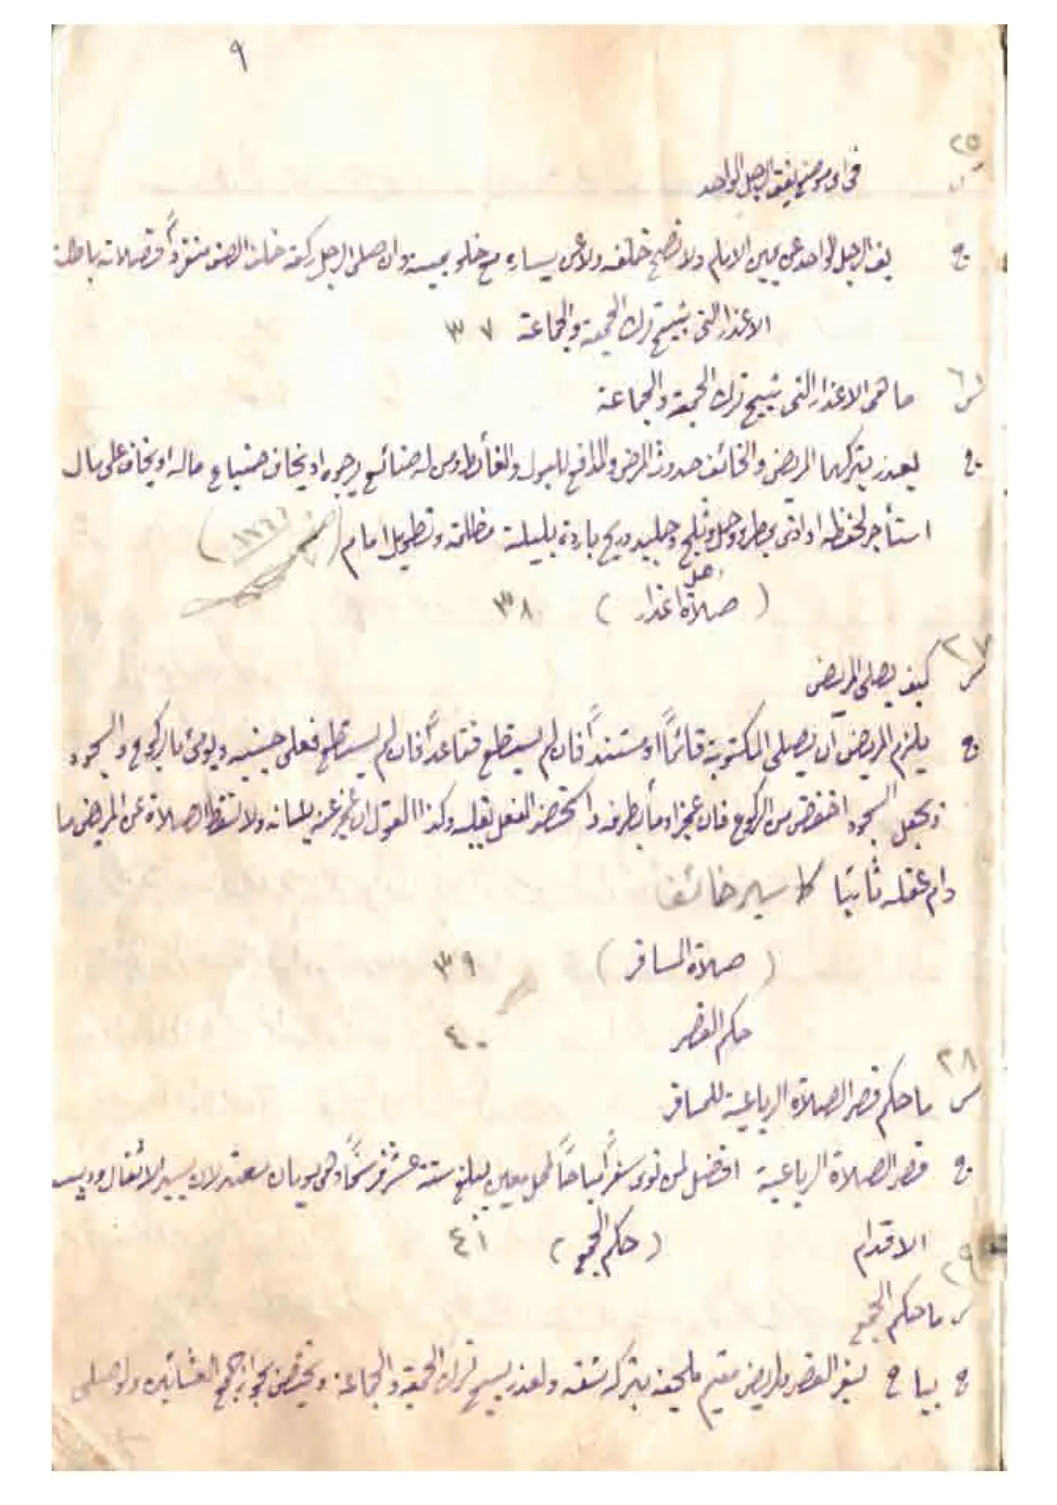 ٩
٢٥
س في اي موضع يقف الرجل الواحد
ج يقف الرجل الواحد عن يمين الامام ولا تصح خلفه ولا عن يساره مع خلو يمينه وان صلى الرجل ركعة خلف الصف منفرداً فصلاته باطلة
الاعذار التي تبيح ترك الجمعة والجماعة ٣٧
٦
س ما هي الاعذار التي تبيح ترك الجمعة والجماعة
ج يعذر بتركهما المريض والخائف حدوث المرض والمدافع للبول والغائط ومن له ضائع يرجوه او يخاف ضياع ماله او يخاف على مال
استأجر لحفظه او اذى بمطر ووحل وثلج وجليد وريح باردة بليلة مظلمة وتطويل امام
( صلاة اهل اعذار ) ٣٨
٢٧
س كيف يصلي المريض
ج يلزم المريض أن يصلي المكتوبة قائماً او مستنداً فان لم يستطع فقاعداً فان لم يستطع فعلى جنبه ويومئ بالركوع والسجود
ويجعل السجود اخفض من الركوع فان عجز اومأ بطرفه واستحضر الفعل بقلبه وكذا القول ان عجز عنه بلسانه ولا تسقط الصلاة عن المريض ما
دام عقله ثابتا كاسير خائف
( صلاة المسافر ) ٣٩
حكم القصر ٤٠
٢٨
س ما حكم قصر الصلاة الرباعية للمسافر
ج قصر الصلاة الرباعية افضل لمن نوى سفراً مباحاً لمحل معين يبلغ ستة عشر فرسخاً وهي يومان معتدلان بسير الاثقال ودبيب
الاقدام ( حكم الجمع ) ٤١
٢٩
س ما حكم الجمع
ج يباح بسفر القصر ولمريض مقيم يلحقه بتركه مشقة ولعذر يبيح ترك الجمعة والجماعة ويختص بجواز جمع العشائين ولو صلى